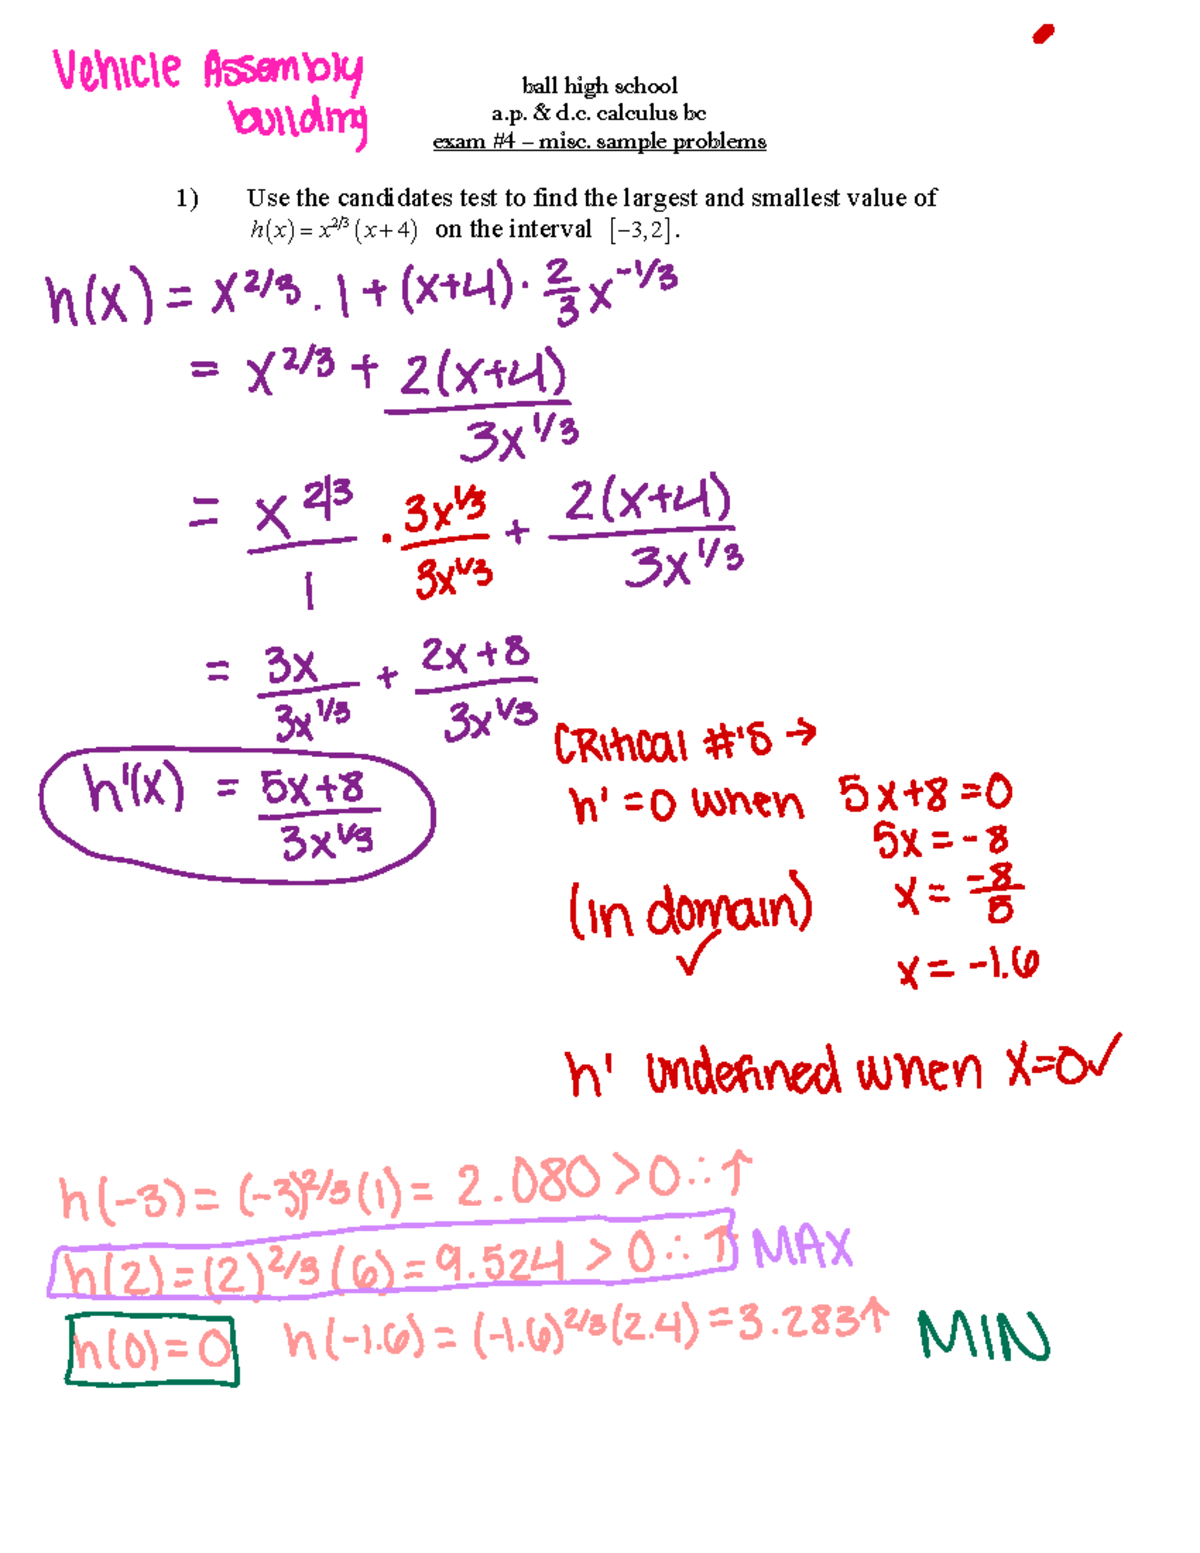 Vehicle Assembly
building
ball high school
a.p. & d.c. calculus bc
exam #4 – misc. sample problems
1) Use the candidates test to find the largest and smallest value of
h(x) = x^{2/3}(x+4) on the interval [−3,2].
h(x) = x^{2/3} · 1 + (x+4) · \frac{2}{3} x^{-1/3}
= x^{2/3} + \frac{2(x+4)}{3x^{1/3}}
= \frac{x^{2/3}}{1} · \frac{3x^{1/3}}{3x^{1/3}} + \frac{2(x+4)}{3x^{1/3}}
= \frac{3x}{3x^{1/3}} + \frac{2x+8}{3x^{1/3}}
h'(x) = \frac{5x+8}{3x^{1/3}}
Critical #'s →
h' = 0 when 5x+8 = 0
5x = -8
(in domain) ✓ x = \frac{-8}{5}
x = -1.6
h' undefined when x=0 ✓
h(-3) = (-3)^{2/3}(1) = 2.080 > 0 ∴ ↑
h(2) = (2)^{2/3}(6) = 9.524 > 0 ∴ ↑ MAX
h(0) = 0 h(-1.6) = (-1.6)^{2/3}(2.4) = 3.283 ↑ MIN